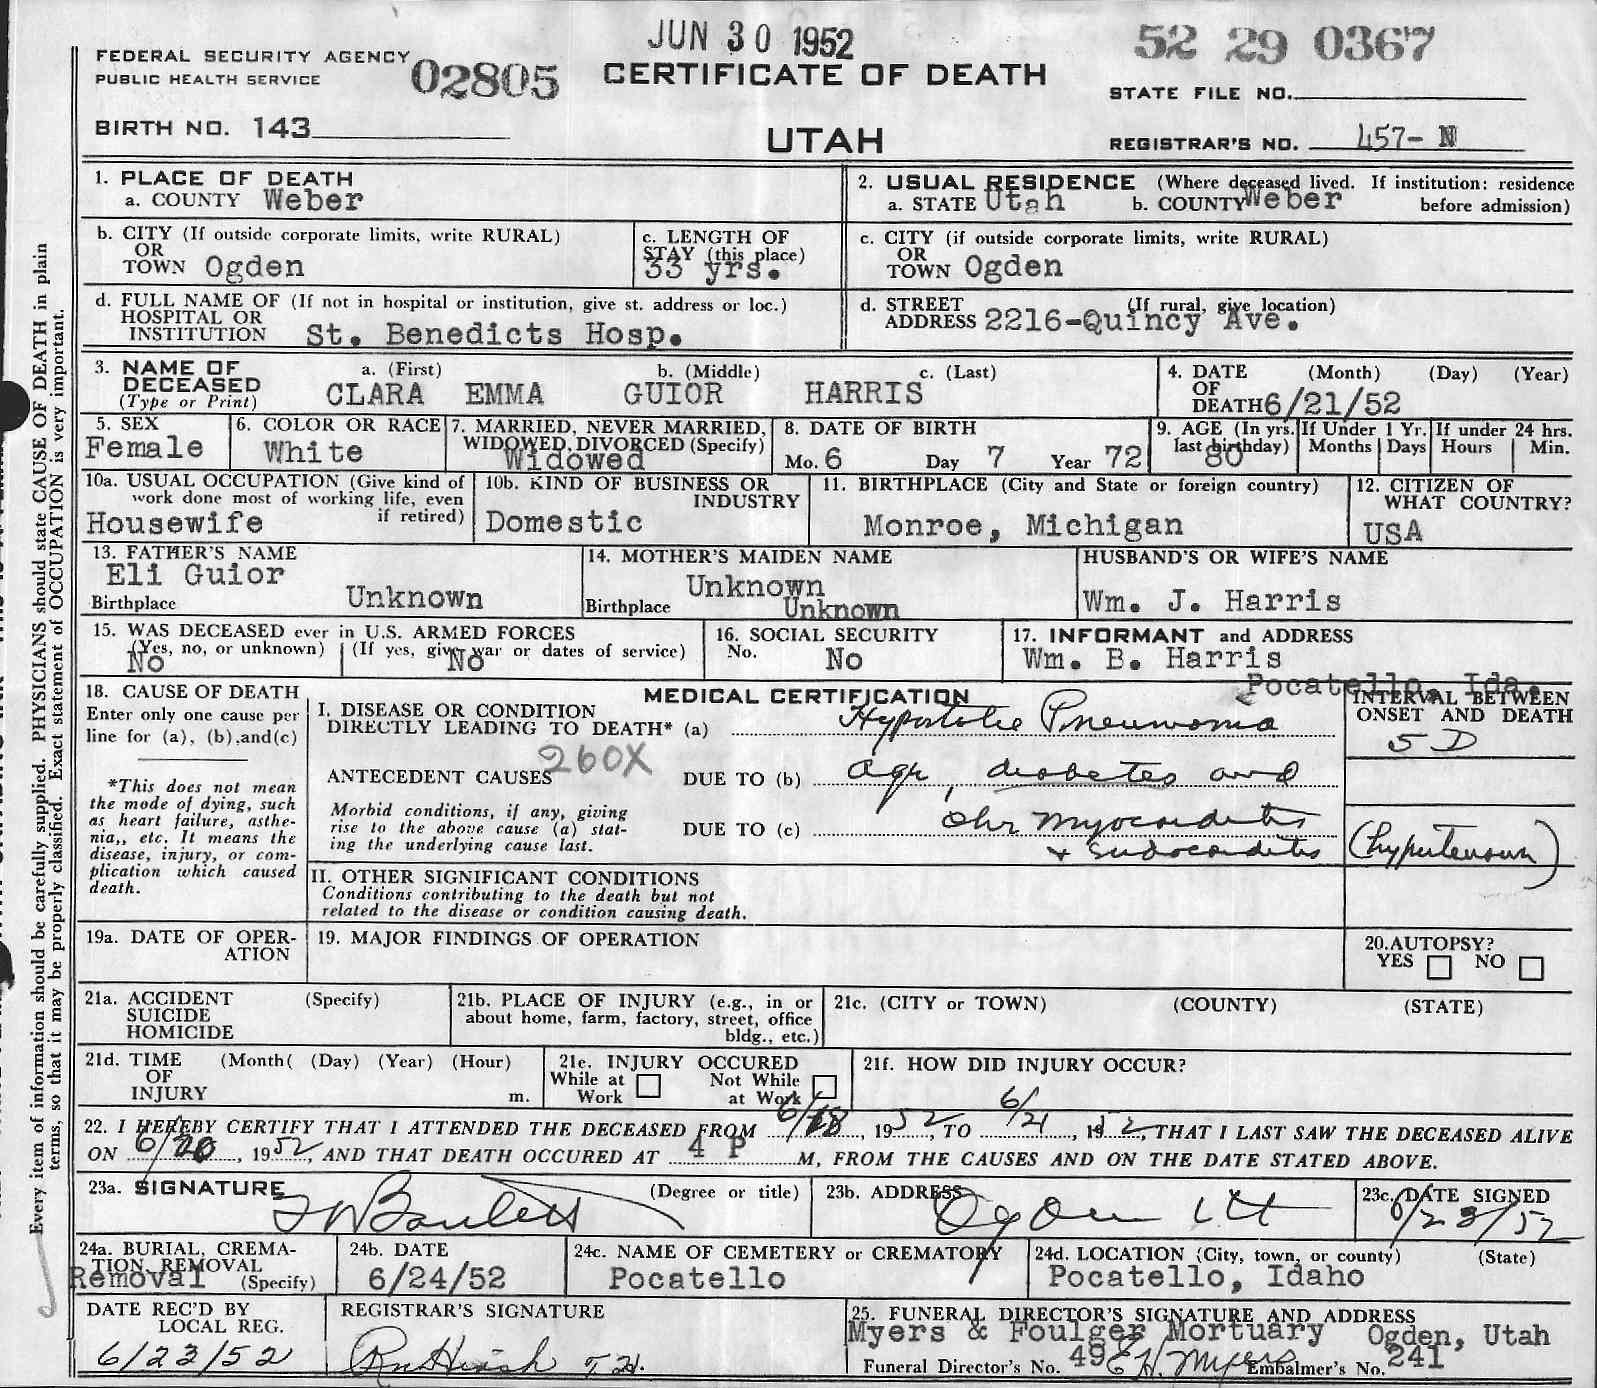 JUN 30 1952
52 29 0367
FEDERAL SECURITY AGENCY
PUBLIC HEALTH SERVICE
02805
CERTIFICATE OF DEATH
STATE FILE NO.
BIRTH NO. 143
UTAH
REGISTRAR'S NO. 457- N
1. PLACE OF DEATH
a. COUNTY Weber
2. USUAL RESIDENCE (Where deceased lived. If institution: residence
a. STATE Utah b. COUNTY Weber before admission)
b. CITY (If outside corporate limits, write RURAL)
OR
TOWN Ogden
c. LENGTH OF
STAY (this place)
33 yrs.
c. CITY (if outside corporate limits, write RURAL)
OR
TOWN Ogden
d. FULL NAME OF (If not in hospital or institution, give st. address or loc.)
HOSPITAL OR
INSTITUTION St. Benedicts Hosp.
d. STREET (If rural, give location)
ADDRESS 2216-Quincy Ave.
3. NAME OF a. (First) b. (Middle) c. (Last)
DECEASED
(Type or Print) CLARA EMMA GUIOR HARRIS
4. DATE (Month) (Day) (Year)
OF
DEATH 6/21/52
5. SEX
Female
6. COLOR OR RACE
White
7. MARRIED, NEVER MARRIED,
WIDOWED, DIVORCED (Specify)
Widowed
8. DATE OF BIRTH
Mo. 6 Day 7 Year 72
9. AGE (In yrs.
last birthday)
80
If Under 1 Yr.
Months Days
If under 24 hrs.
Hours Min.
10a. USUAL OCCUPATION (Give kind of
work done most of working life, even
if retired)
Housewife
10b. KIND OF BUSINESS OR
INDUSTRY
Domestic
11. BIRTHPLACE (City and State or foreign country)
Monroe, Michigan
12. CITIZEN OF
WHAT COUNTRY?
USA
13. FATHER'S NAME
Eli Guior
Birthplace Unknown
14. MOTHER'S MAIDEN NAME
Unknown
Birthplace Unknown
HUSBAND'S OR WIFE'S NAME
Wm. J. Harris
15. WAS DECEASED ever in U.S. ARMED FORCES
(Yes, no, or unknown) (If yes, give war or dates of service)
No No
16. SOCIAL SECURITY
No. No
17. INFORMANT and ADDRESS
Wm. B. Harris
Pocatello, Ida.
18. CAUSE OF DEATH
Enter only one cause per
line for (a), (b),and(c)
*This does not mean
the mode of dying, such
as heart failure, asthe-
nia,, etc. It means the
disease, injury, or com-
plication which caused
death.
MEDICAL CERTIFICATION
I. DISEASE OR CONDITION
DIRECTLY LEADING TO DEATH* (a) Hypostatic Pneumonia
INTERVAL BETWEEN
ONSET AND DEATH
5 D
260X
ANTECEDENT CAUSES DUE TO (b) age, diabetes and
Morbid conditions, if any, giving
rise to the above cause (a) stat-
ing the underlying cause last.
DUE TO (c) Chr myocarditis
+ endocarditis (hypertension)
II. OTHER SIGNIFICANT CONDITIONS
Conditions contributing to the death but not
related to the disease or condition causing death.
19a. DATE OF OPER-
ATION
19. MAJOR FINDINGS OF OPERATION
20.AUTOPSY?
YES NO
21a. ACCIDENT (Specify)
SUICIDE
HOMICIDE
21b. PLACE OF INJURY (e.g., in or
about home, farm, factory, street, office
bldg., etc.)
21c. (CITY or TOWN) (COUNTY) (STATE)
21d. TIME (Month( (Day) (Year) (Hour)
OF
INJURY m.
21e. INJURY OCCURED
While at Not While
Work at Work
21f. HOW DID INJURY OCCUR?
22. I HEREBY CERTIFY THAT I ATTENDED THE DECEASED FROM 6/18, 1952, TO 6/21, 1952, THAT I LAST SAW THE DECEASED ALIVE
ON 6/20, 1952, AND THAT DEATH OCCURED AT 4 P M, FROM THE CAUSES AND ON THE DATE STATED ABOVE.
23a. SIGNATURE (Degree or title)
23b. ADDRESS
Ogden Ut
23c. DATE SIGNED
6/23/52
24a. BURIAL, CREMA-
TION, REMOVAL
Removal (Specify)
24b. DATE
6/24/52
24c. NAME OF CEMETERY or CREMATORY
Pocatello
24d. LOCATION (City, town, or county) (State)
Pocatello, Idaho
DATE REC'D BY
LOCAL REG.
6/23/52
REGISTRAR'S SIGNATURE
25. FUNERAL DIRECTOR'S SIGNATURE AND ADDRESS
Myers & Foulger Mortuary Ogden, Utah
Funeral Director's No. 49 E H. Myers Embalmer's No. 241
Every item of information should be carefully supplied. PHYSICIANS should state CAUSE OF DEATH in plain
terms, so that it may be properly classified. Exact statement of OCCUPATION is very important.